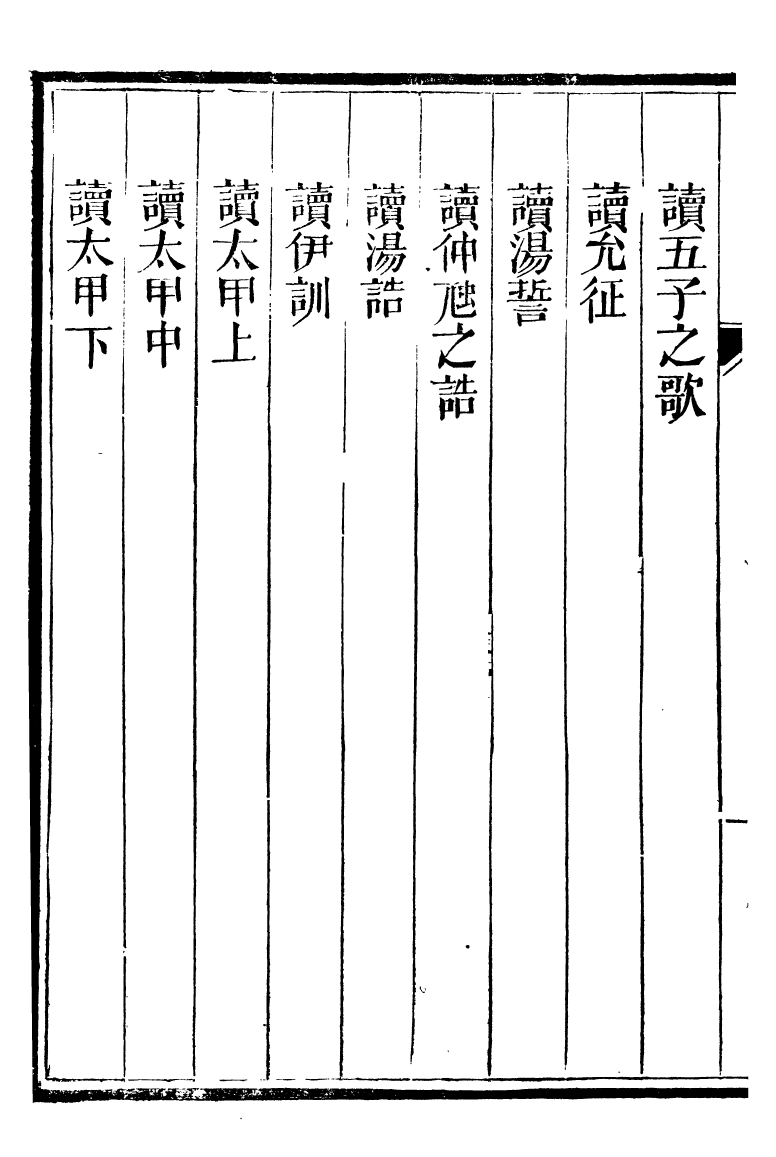 讀五子之歌
讀允征
讀湯誓
讀仲虺之誥
讀湯誥
讀伊訓
讀太甲上
讀太甲中
讀太甲下